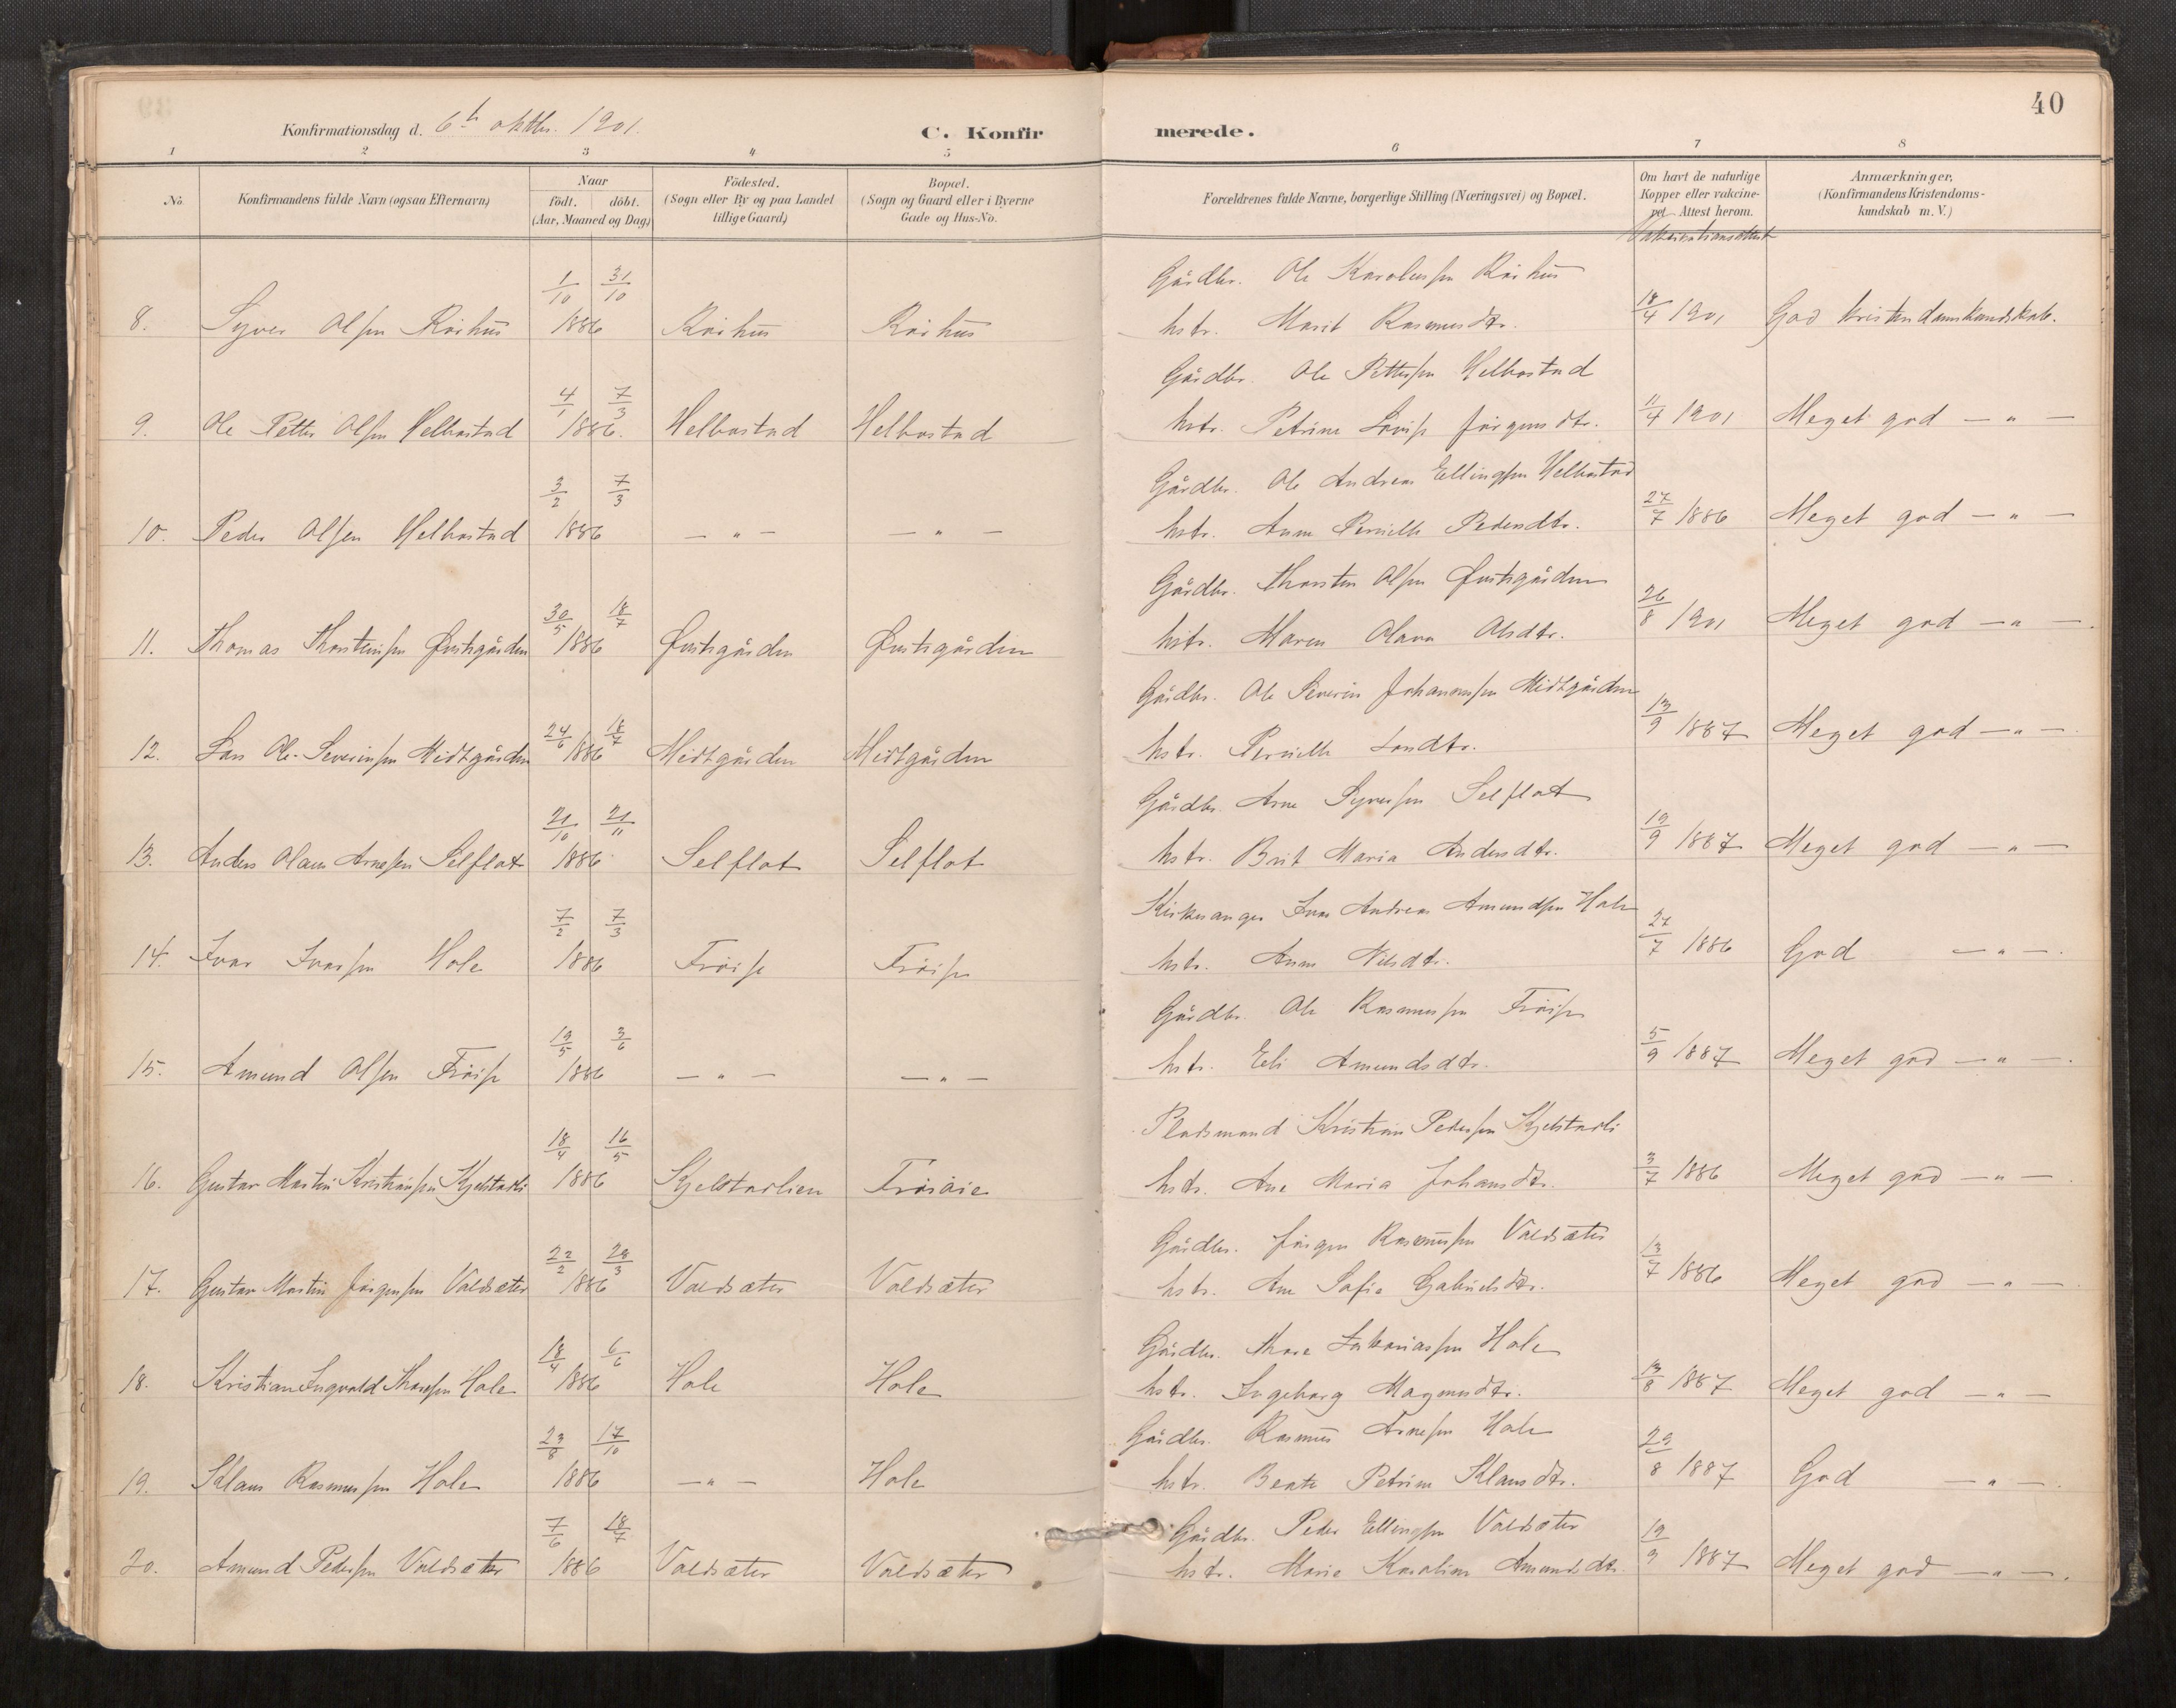 40
Konfirmationsdag d. 6te oktbr. 1901.
C. Konfirmerede.
1 2 3 4 5 6 7 8
No. Konfirmandens fulde Navn (ogsaa Efternavn) Naar födt. döbt. (Aar, Maaned og Dag.) Födested. (Sogn eller By og paa Landet tillige Gaard.) Bopæl. (Sogn og Gaard eller i Byerne Gade og Hus-No. Forældrenes fulde Navne, borgerlige Stilling (Næringsvei) og Bopæl. Om havt de naturlige Kopper eller vakcinepet. Attest herom. Anmærkninger, (Konfirmandens Kristendomskundskab m. V.)
Vakcinationsattest
1/10 31/10 Gårdbr. Ole Karolussen Rørhus
8. Syver Olsen Rørhus 1886 Rørhus Rørhus hstr. Marit Rasmusdtr. 18/4 1901 God kristendomskundskab.
4/1 7/3 Gårdbr. Ole Pettersen Helbostad
9. Ole Petter Olsen Helbostad 1886. Helbostad Helbostad hstr. Petrine Lovise Jørgensdtr. 11/4 1901 Meget god — " —
3/2 7/3 Gårdbr. Ole Andreas Ellingsen Helbostad
10. Peder Olsen Helbostad 1886 — " — — " — hstr. Anne Pernille Pedersdtr. 27/7 1886 Meget god — " —
30/5 18/7 Gårdbr. Thorsten Olsen Østigården
11. Thomas Thorsteinsen Østigården 1886 Østigården Østigården hstr. Maren Olava Olsdtr. 26/8 1901 Meget god — " —
24/6 18/7 Gårdbr. Ole Severin Johannesen Midtgården
12. Lars Ole-Severinsen Midtgården 1886 Midtgården Midtgården hstr. Pernille Larsdtr. 13/9 1887 Meget god — " —
21/10 21/11 Gårdbr. Arne Syversen Selflot
13. Anders Olaus Arnesen Selflot 1886 Selflot Selflot hstr. Brit Maria Andersdtr. 19/9 1887 Meget god — " —
7/2 7/3 Kirkesanger Ivar Andreas Amundsen Hole
14. Ivar Ivarsen Hole 1886 Frøise Frøise hstr. Anne Nilsdtr. 27/7 1886 God — " —
19/5 3/6 Gårdbr. Ole Rasmussen Frøise
15. Amund Olsen Frøise 1886 — " — — " — hstr. Eli Amundsdtr. 5/9 1887 Meget god — " —
18/4 16/5 Pladsmand Kristian Pedersen Kjelstadli
16. Gustav Martin Kristiansen Kjelstadli 1886 Kjelstadlien Frøisøie hstr. Ane Maria Johansdtr. 3/7 1886 Meget god — " —
22/2 28/3 Gårdbr. Jørgen Rasmussen Valdsæter
17. Gustav Martin Jørgensen Valdsæter 1886 Valdsæter Valdsæter hstr. Ane Sofie Gabrielsdtr. 13/7 1886 Meget god — " —
18/4 6/6 Gårdbr. Thore Zakariassen Hole
18. Kristian Ingvald Thoresen Hole 1886 Hole Hole hstr. Ingeborg Magnusdtr. 13/8 1887 Meget god — " —
23/8 17/10 Gårdbr. Rasmus Arnesen Hole
19. Klaus Rasmussen Hole 1886 — " — Hole hstr. Beate Petrine Klausdtr. 29/8 1887 God — " —
7/6 18/7 Gårdbr. Peder Ellingsen Valdsæter
20. Amund Pedersen Valdsæter 1886 Valdsæter Valdsæter hstr. Marie Karoline Amundsdtr. 19/9 1887 Meget god — " —